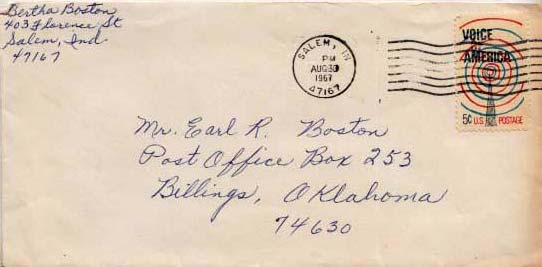 Bertha Boston
403 Florence St
Salem, Ind.
47167
SALEM, IN
PM
AUG 30
1967
47167
VOICE
OF
AMERICA
5c U.S. POSTAGE
Mr. Earl R. Boston
Post Office Box 253
Billings, Oklahoma
74630